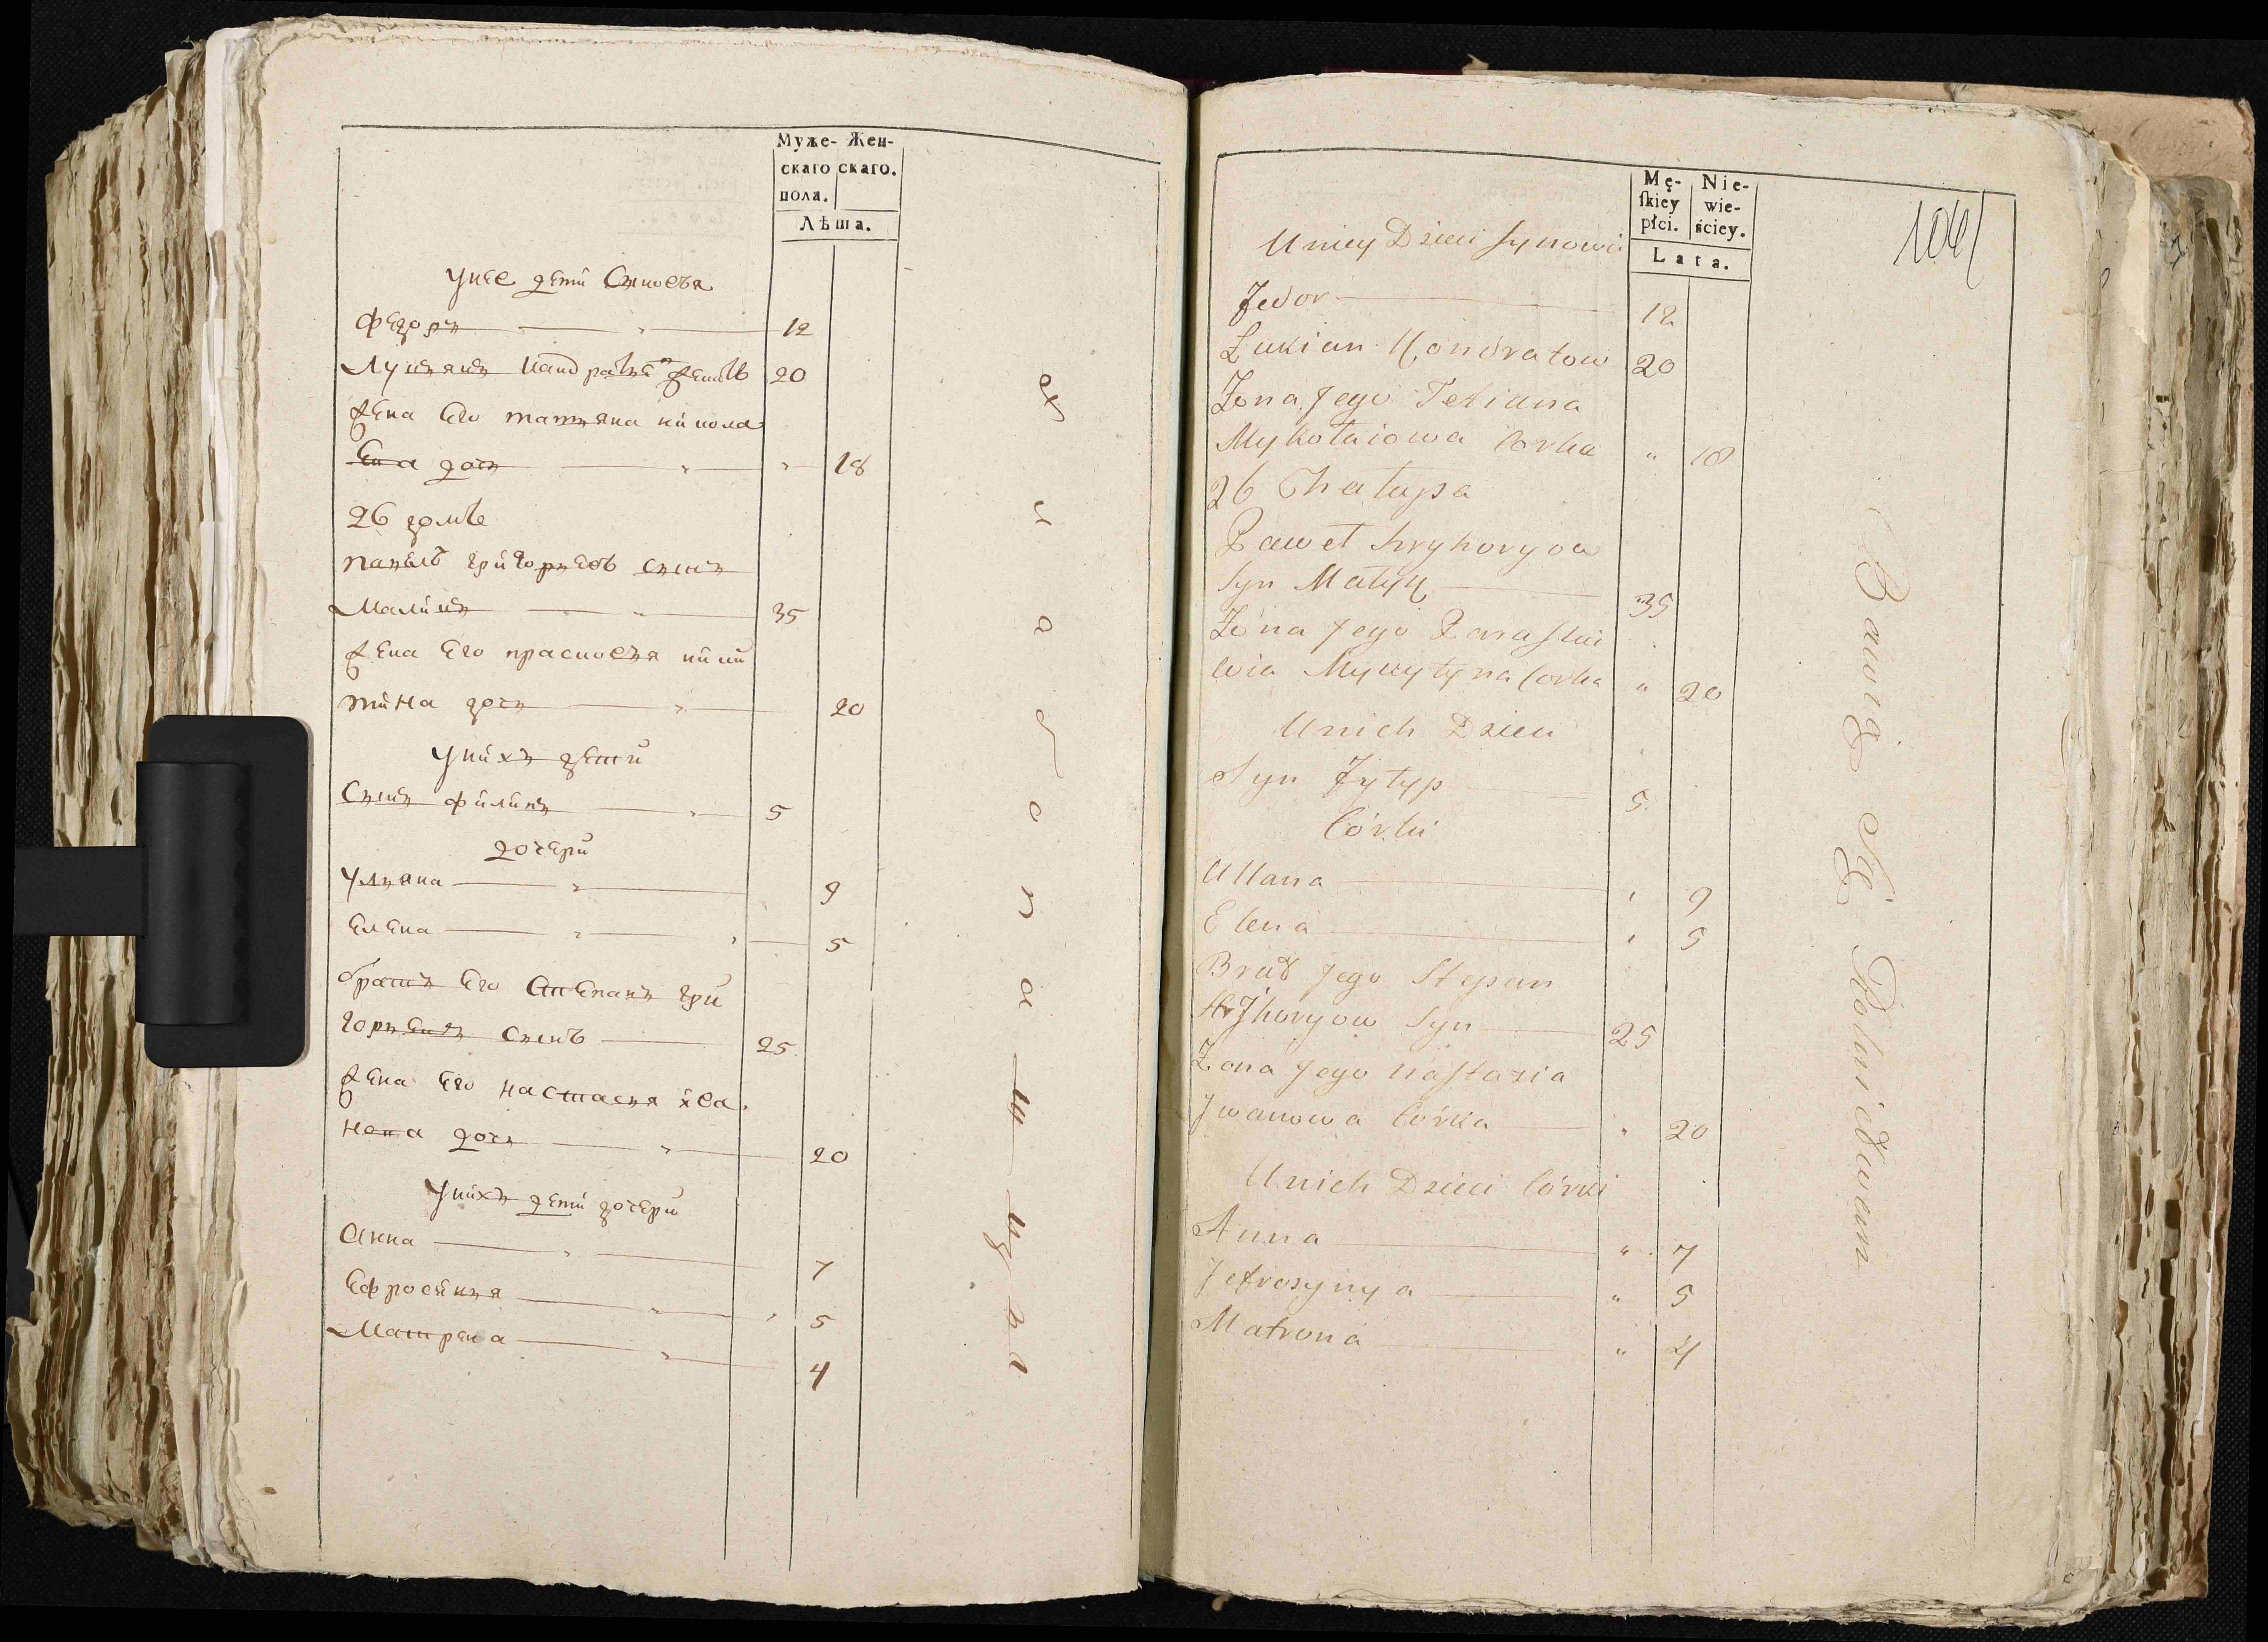 Муже- Жен-
скаго скаго.
пола.
Лѣта.
унее дети Сыновья
Федоръ 12
Лукянъ Кандратьевъ 20
Жена Его татьяна никола
Ева дочь 18
26 домъ
павелъ григорьевъ сынъ
Маликъ 35
Жена Его прасковья ники
тина дочь 20
унихъ дети
Сынъ филипъ 5
дочери
уляна 9
Елена 5
братъ Его Степанъ гри
горьевъ сынъ 25
Жена Его настасья ива
нова дочь 20
унихъ дети дочери
Анна 7
Ефросинья 5
Матрена 4
Mę- Nie-
skiey wie-
płci. ściey.
Lata.
104
Uniey Dzieci Synowie
Fedor 12
Łukian Kondratow 20
Żona Jego Tetiana
Mykołaiowa Corka " 18
26 Chałupa
Paweł hryhoryow
Syn Malyk 35
Żona Jego Paraskie
wia Mykytyna Corka " 20
Unich Dzieci
Syn Fylyp 5
Córki
Ullana 9
Elena 5
Brat Jego Stepan
Hryhoryow Syn 25
Żona Jego Nastazia
Jwanowa Córka " 20
Unich Dzieci Córki
Anna " 7
Jefrosynya " 5
Matrona " 4
Bawią Się Rolnictwem